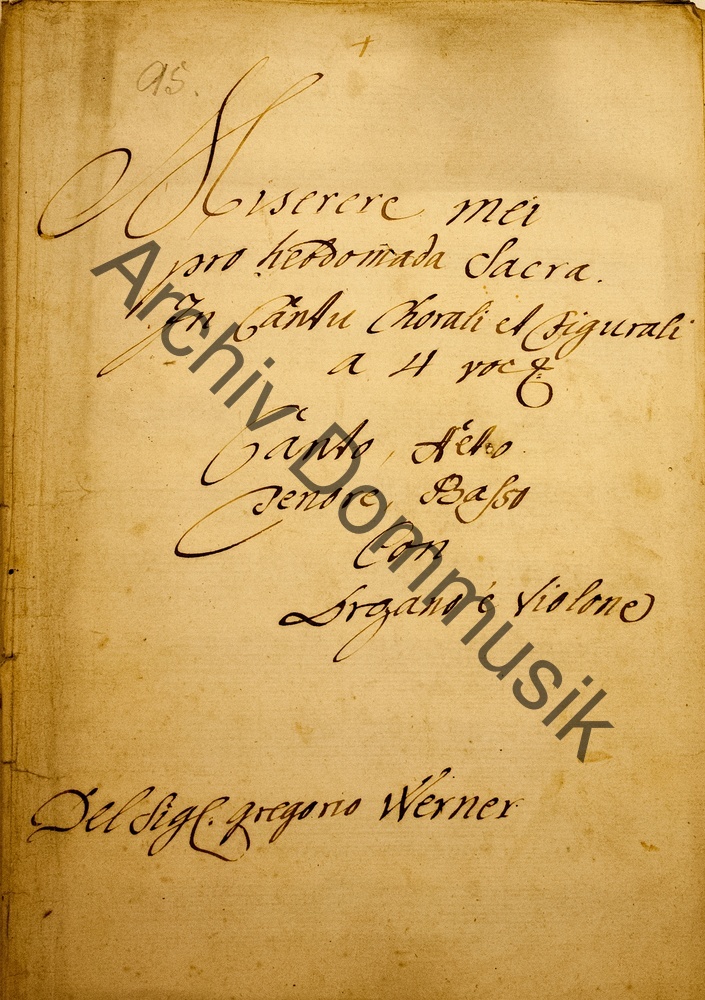 95.
Miserere mei
pro hebdomada Sacra.
In Cantu Chorali et Figurali
a 4 voc:
Canto, Alto
Tenore, Basso
Con
Organo è Violone
Del Sig: gregorio Werner
Archiv Dommusik